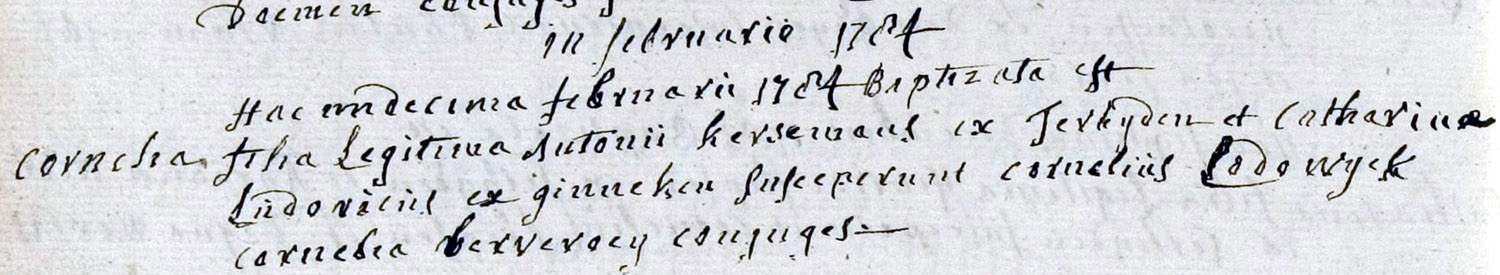 Daemen conjuges
in februario 1784
Hac undecima februarii 1784 Baptizata est
Cornelia filia Legitima Antonii kersemans ex Terheyden et Catharina
Ludovicus ex ginneken susceperunt cornelius Lodowyck
cornelia ververoey conjuges